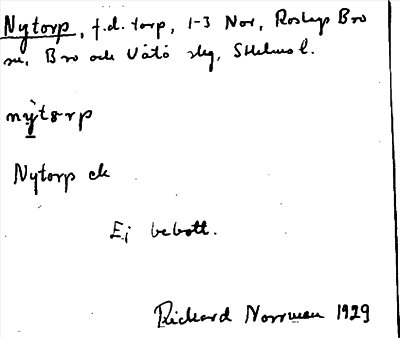 Nytorp, f.d. torp, 1-3 Nor, Roslags Bro
sn, Bro och Vätö skg, Sthlms l.
nỳtɷrp
Nytorp ek
Ej bebott.
Richard Norrman 1929